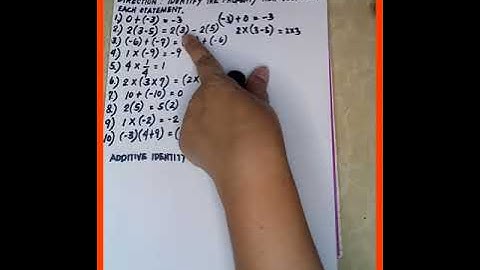 DIRECTION: IDENTIFY THE PROPERTY
EACH STATEMENT.
1) 0 + (-3) = -3 (-3) + 0 = -3
2) 2(3-5) = 2(3) - 2(5) 2 x (3-5) = 2x3
3) (-6) + (-7) = + (-6)
4) 1 x (-9) = -9
5) 4 x 1/4 = 1
6) 2 x (3 x 7) = (2x
7) 10 + (-10) = 0
8) 2(5) = 5(2)
9) 1 x (-2) = -2
10) (-3)(4+9) = (
ADDITIVE IDENTITY